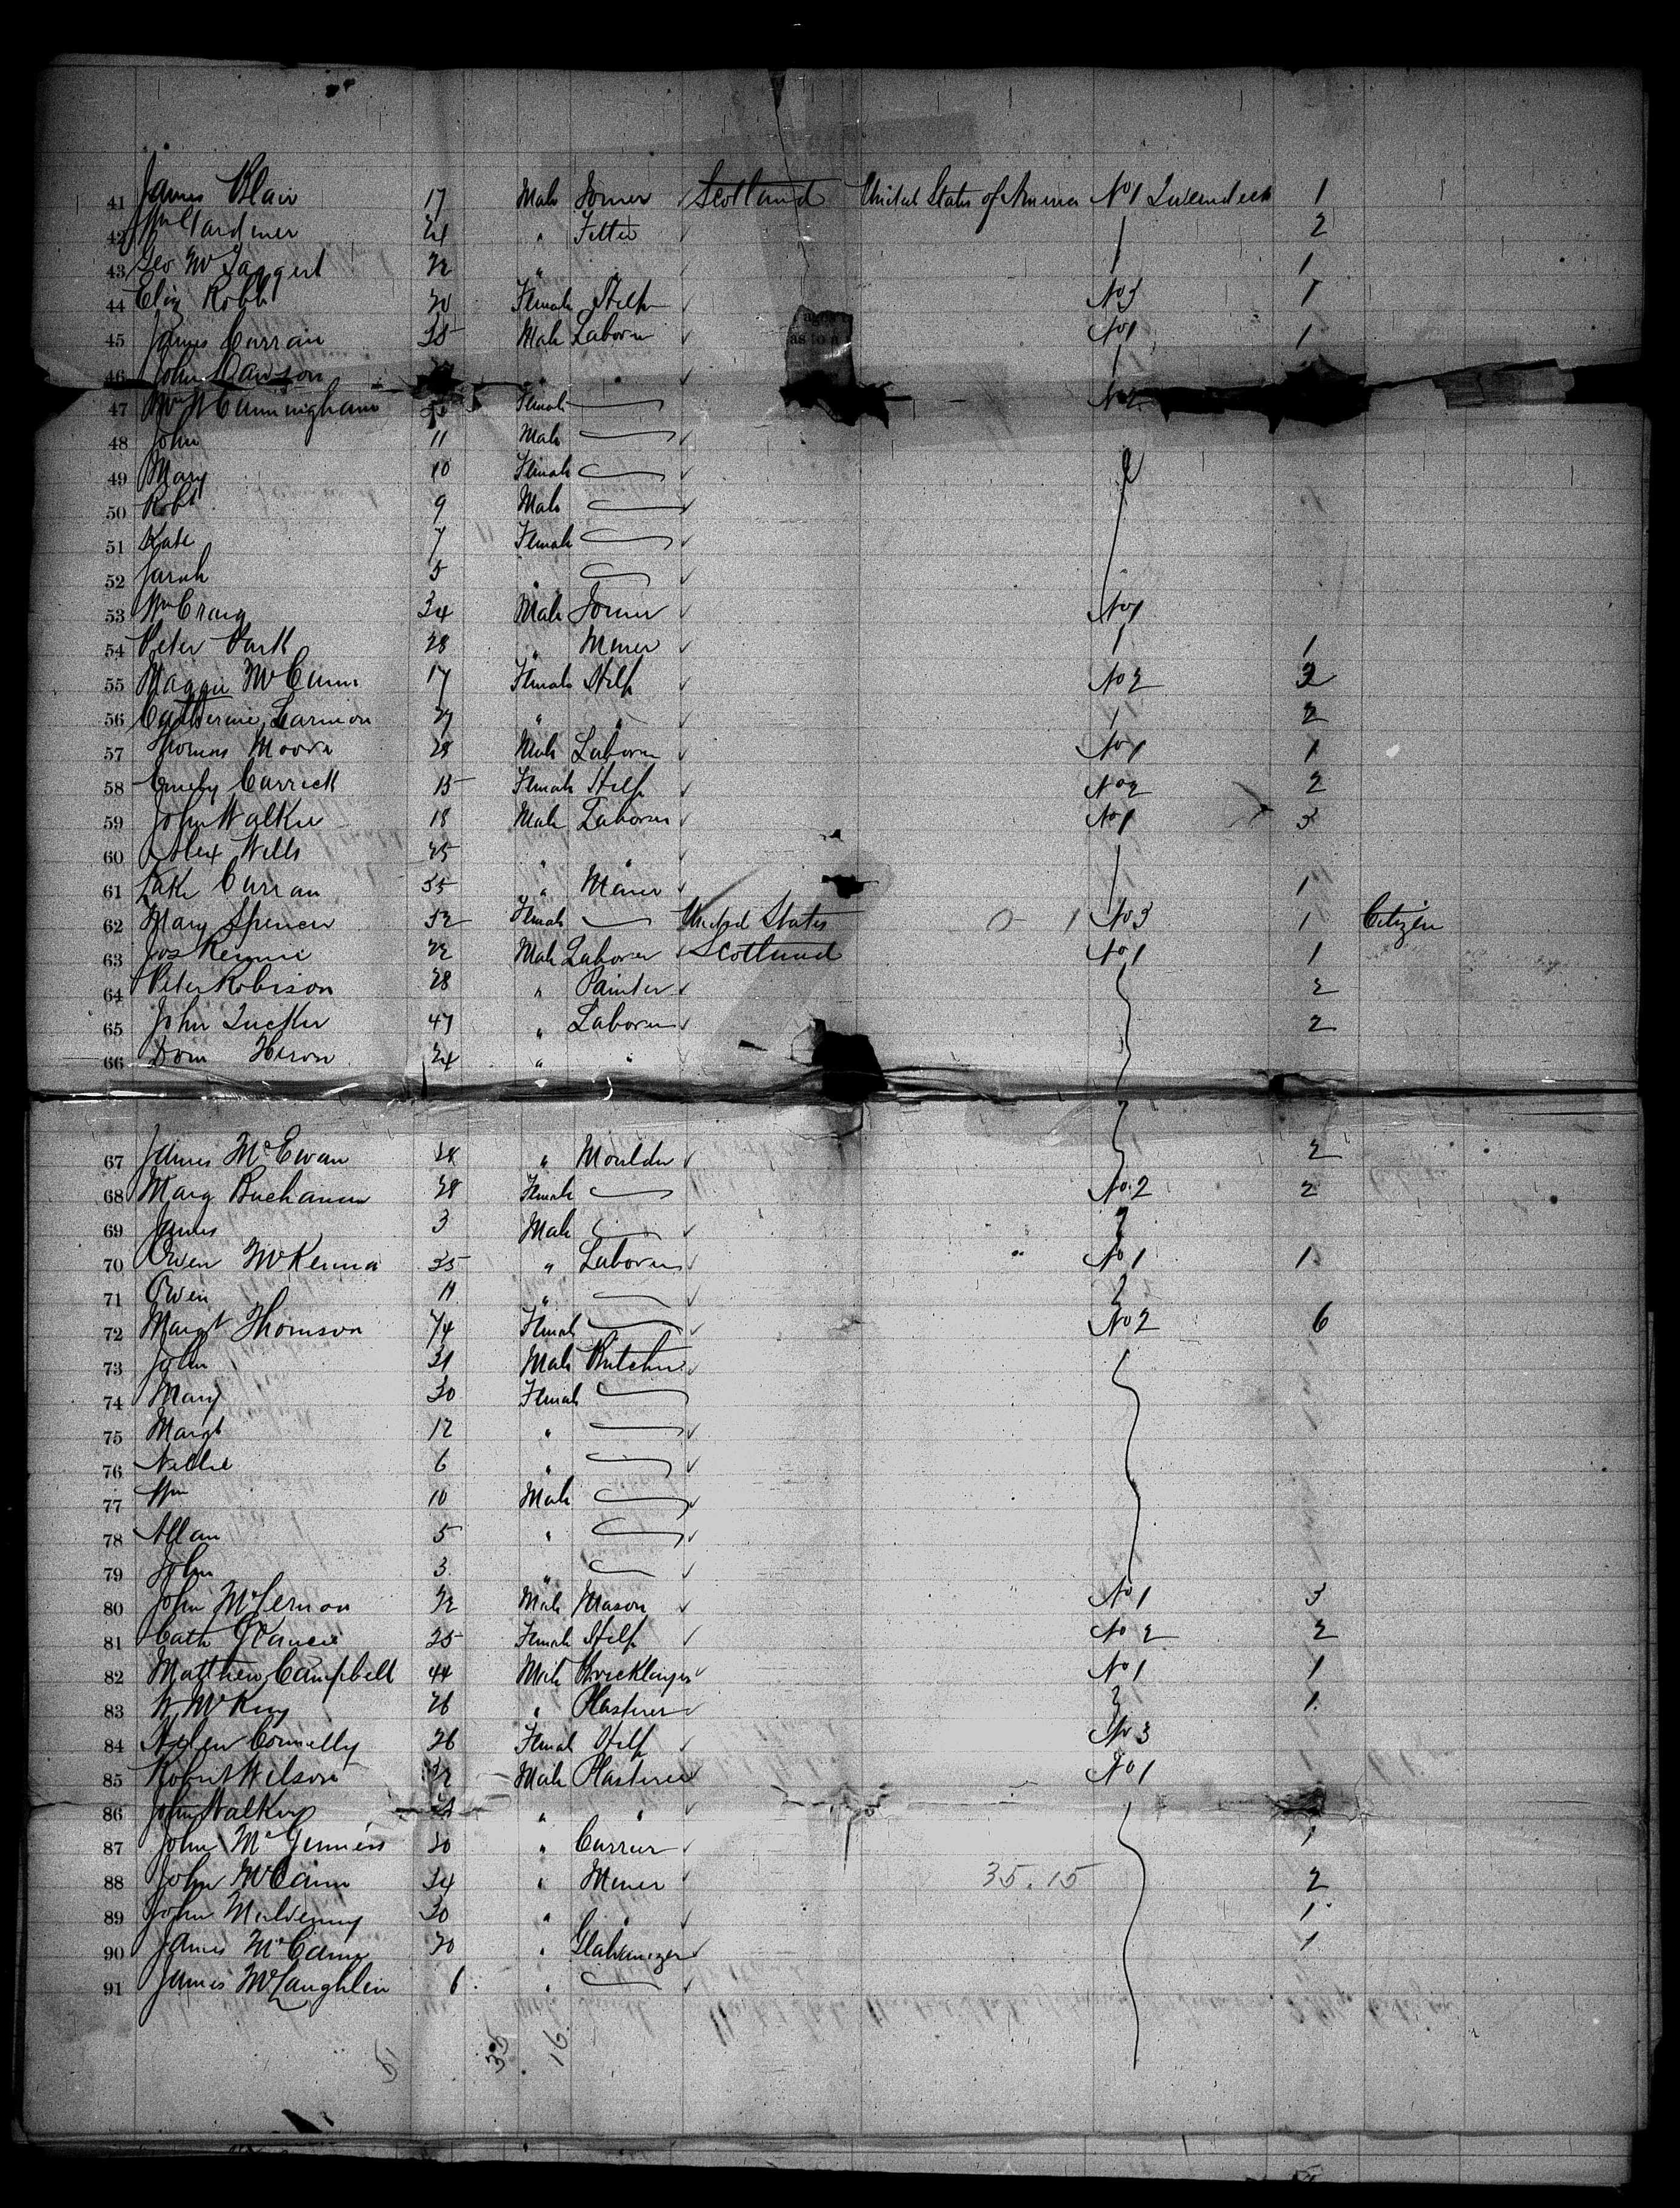 41 James Blair 17 Male Joiner Scotland United States of America No 1 1
42 Wm Gardiner 24 " Fitter 2
43 Geo McTaggert 22 " " 1
44 Eliz Robb 20 Female Help No 3 1
45 James Curran 35 Male Laborer No 1 1
46 John Dawson " "
47 Mrs Cunningham Female No 2
48 John 11 Male
49 Mary 10 Female
50 Robt 9 Male
51 Kate 7 Female
52 Sarah 5 "
53 Wm Craig 34 Male Joiner No 1
54 Peter Park 28 " Miner 1
55 Maggie McCunn 17 Female Help No 2 2
56 Catherine 27 " " 2
57 Thomas Moore 28 Male Laborer No 1 1
58 Carrick 15 Female Help No 2 2
59 John Walker 18 Male Laborer No 1 3
60 Alex Wells 25 " "
61 Curran 35 " Miner 1
62 Mary Spencer 52 Female United States 0 1 No 3 1 Citizen
63 Jos Rennie 22 Male Laborer Scotland No 1 1
64 Peter Robison 28 " Painter 2
65 John Tucker 47 " Laborer 2
66 Dom Heron 24 " "
67 James McEwan 28 " Moulder 2
68 Marg Buchanan 28 Female No. 2 2
69 James 3 Male
70 Owen McKenna 35 " Laborer No 1 1
71 Owen 11 "
72 Margt Thomson 74 Female No 2 6
73 John 31 Male Butcher
74 Mary 30 Female
75 Margt 12 "
76 Nellie 6 "
77 Wm 10 Male
78 Allan 5 "
79 John 3 "
80 John McLernon 22 Male Mason No 1 3
81 Cath 25 Female Help No 2 2
82 Matthew Campbell 44 Male Bricklayer No 1 1
83 W McKay 26 " Plasterer 1
84 Helen Connelly 26 Female Help No 3
85 Robert Wilson Male Plasterer No 1
86 John Walker " "
87 John McGinness 20 " Currier 1
88 John McCann 34 " Miner 35.15 2
89 John Mulvenny 30 " " 1
90 James McCann 20 " Galvanizer 1
91 James McLaughlin 6 "
35 16